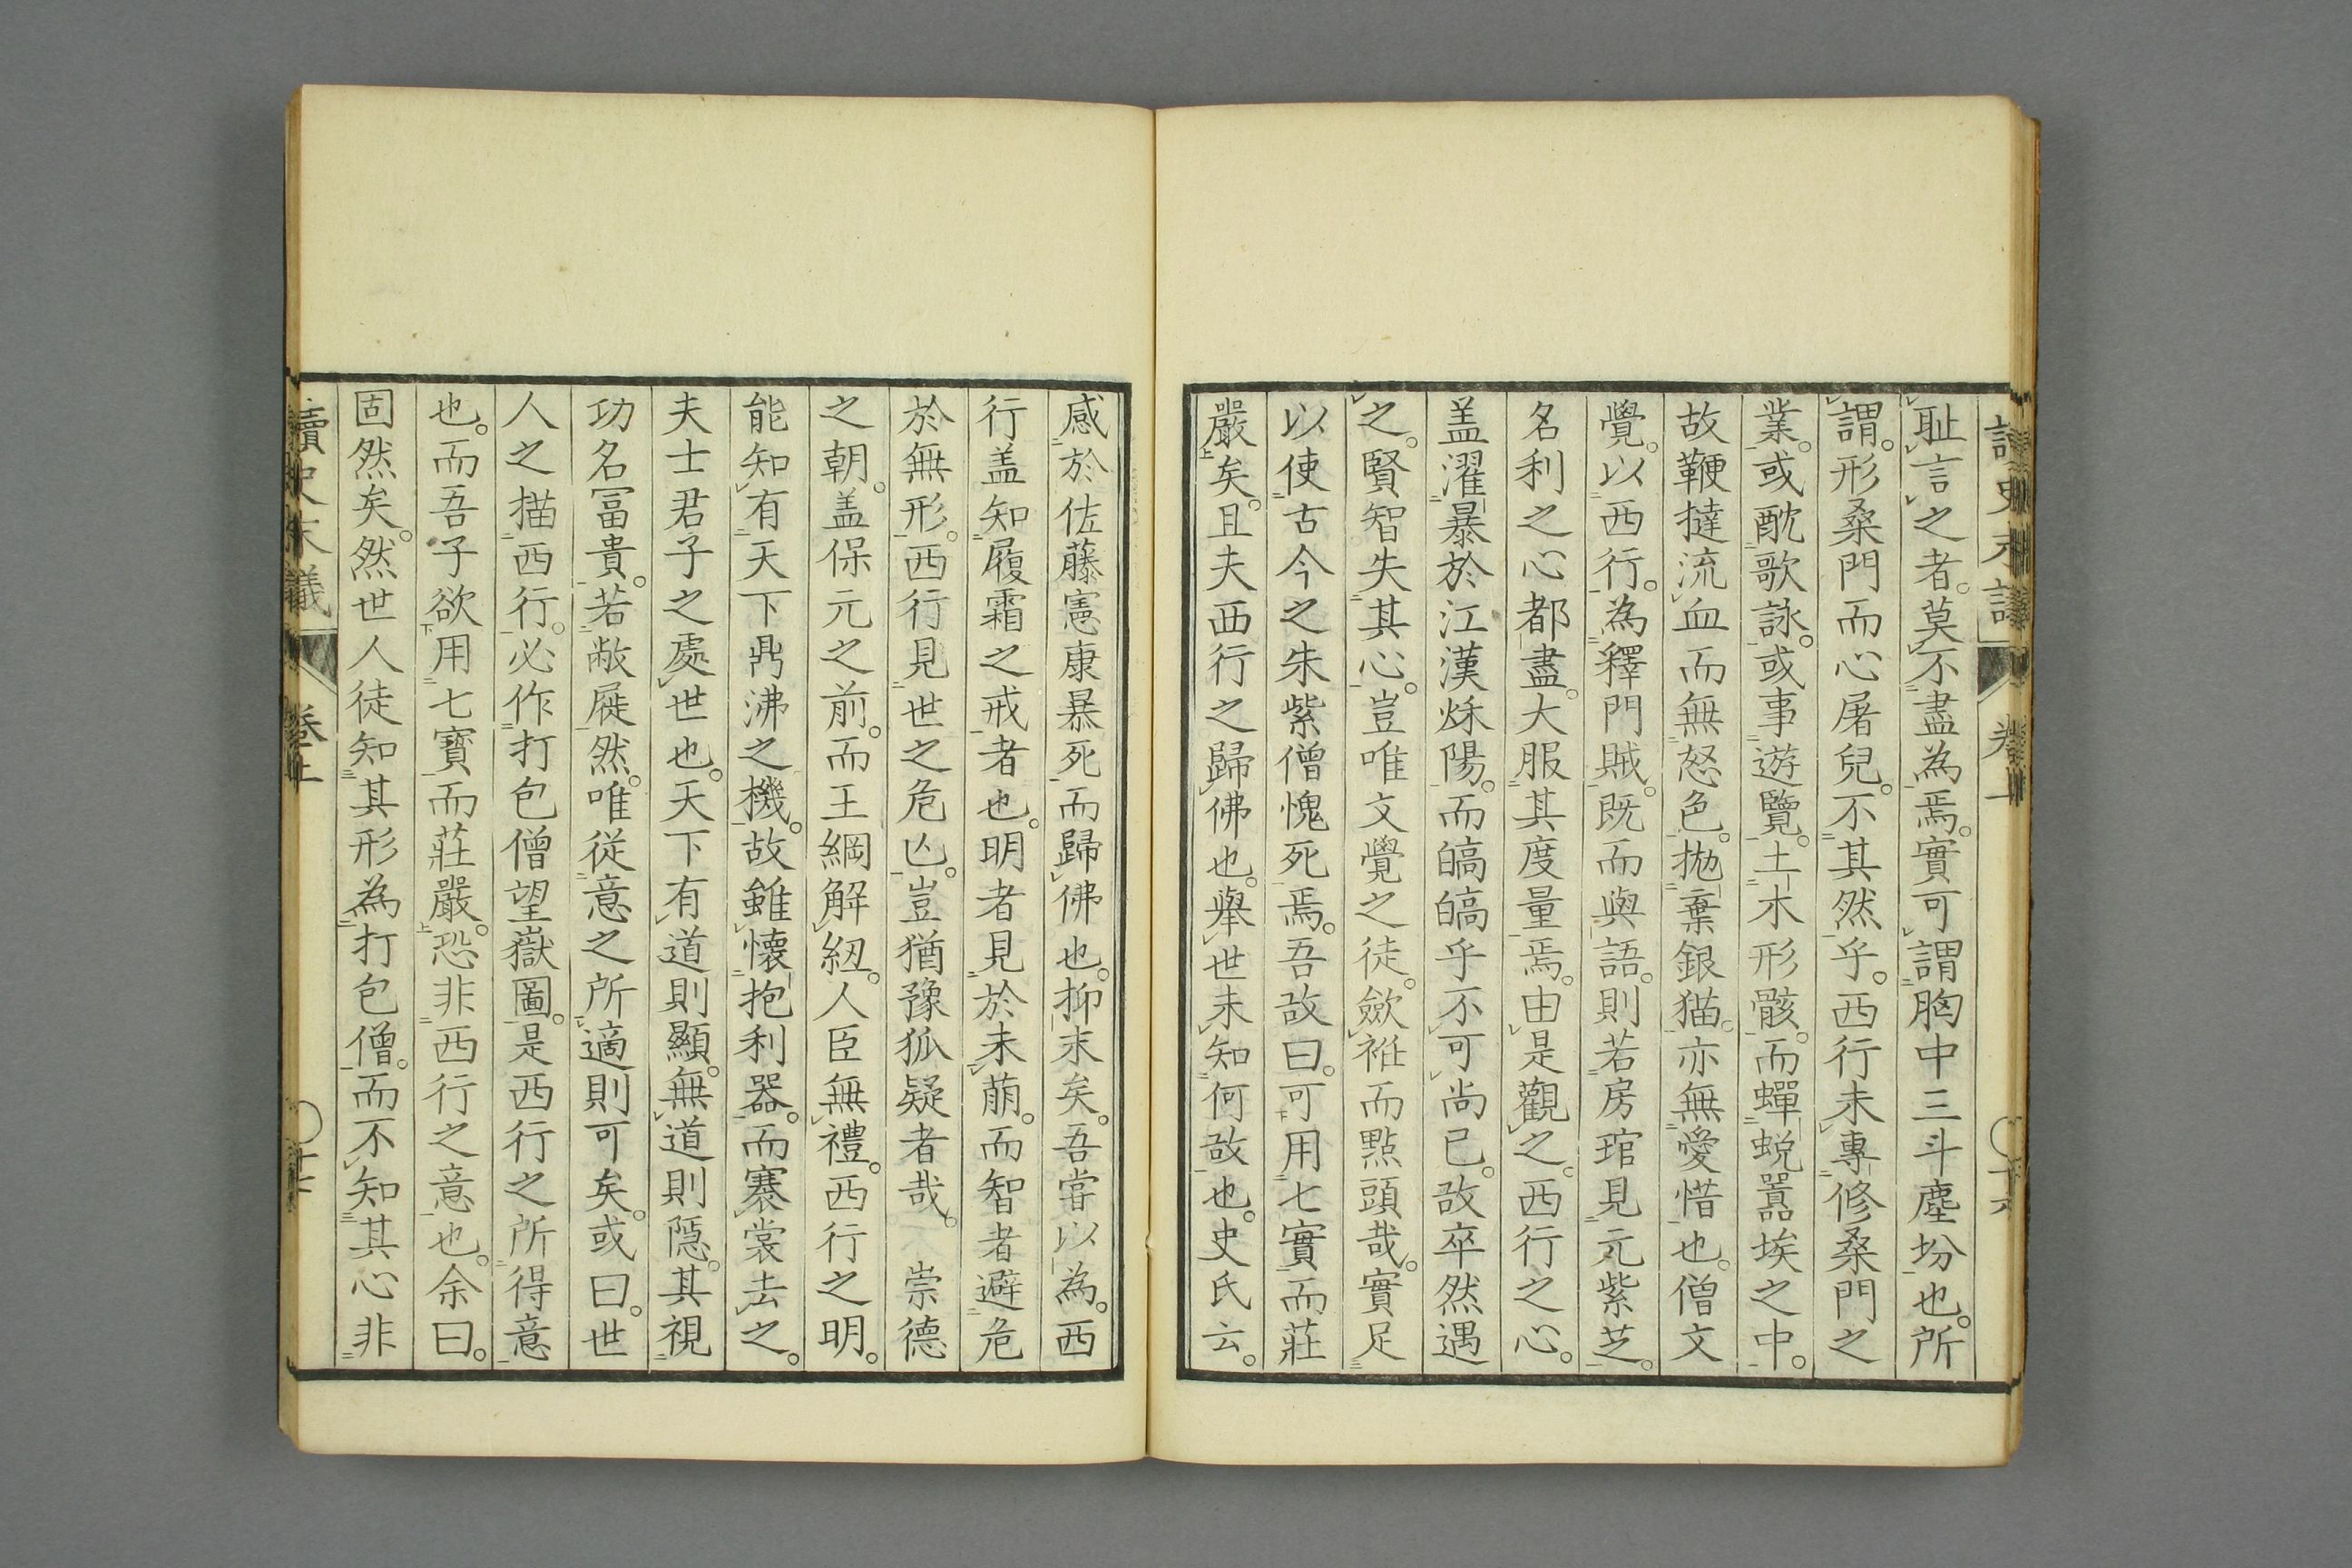 耻言之者。莫不盡為焉。實可謂胸中三斗塵坋也。所
謂。形桑門而心屠兒。不其然乎。西行未專修桑門之
業。或酖歌詠。或事遊覽。土木形骸。而蟬蛻囂埃之中。
故鞭撻流血而無怒色。拋棄銀猫。亦無愛惜也。僧文
覺。以西行。為釋門賊。既而與語。則若房琯見元紫芝。
名利之心都盡。大服其度量焉。由是觀之。西行之心。
盖濯暴於江漢秌陽。而皜皜乎不可尚已。故卒然遇
之。賢智失其心。豈唯文覺之徒。歛袵而點頭哉。實足
以使古今之朱紫僧愧死焉。吾故曰。可用七寶而莊
嚴矣。且夫西行之歸佛也。擧世未知何故也。史氏云。
感於佐藤憲康暴死而歸佛也。抑末矣。吾嘗以為。西
行盖知履霜之戒者也。明者見於未萠。而智者避危
於無形。西行見世之危亾。豈猶豫狐疑者哉。 崇德
之朝。盖保元之前。而王綱解紐。人臣無禮。西行之明。
能知有天下鼎沸之機。故雖懷抱利器。而褰裳去之。
夫士君子之處世也。天下有道則顯。無道則隱。其視
功名冨貴。若敝屣然。唯從意之所適則可矣。或曰。世
人之描西行。必作打包僧望嶽圖。是西行之所得意
也。而吾子欲用七寶而莊嚴。恐非西行之意也。余曰。
固然矣。然世人徒知其形為打包僧。而不知其心非
讀史末議 卷上 十七